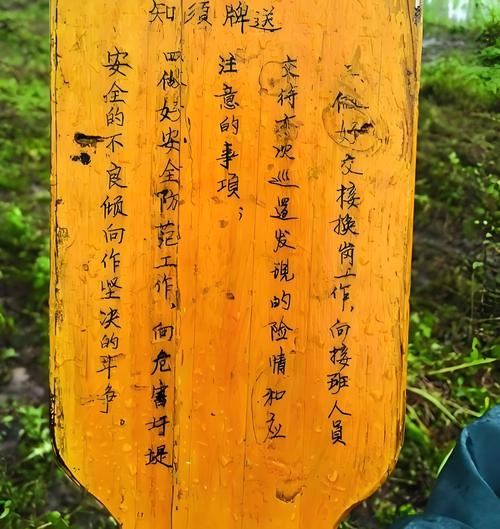 送牌須知
三做好交接换岗工作,向接班人员
交待本次巡逻发现的险情和应
注意的事項;
四做好安全防范工作,向危害圩堤
安全的不良倾向作坚决的斗争。